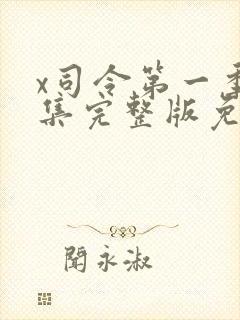 x司令第一季
集完整版免
闻永淑